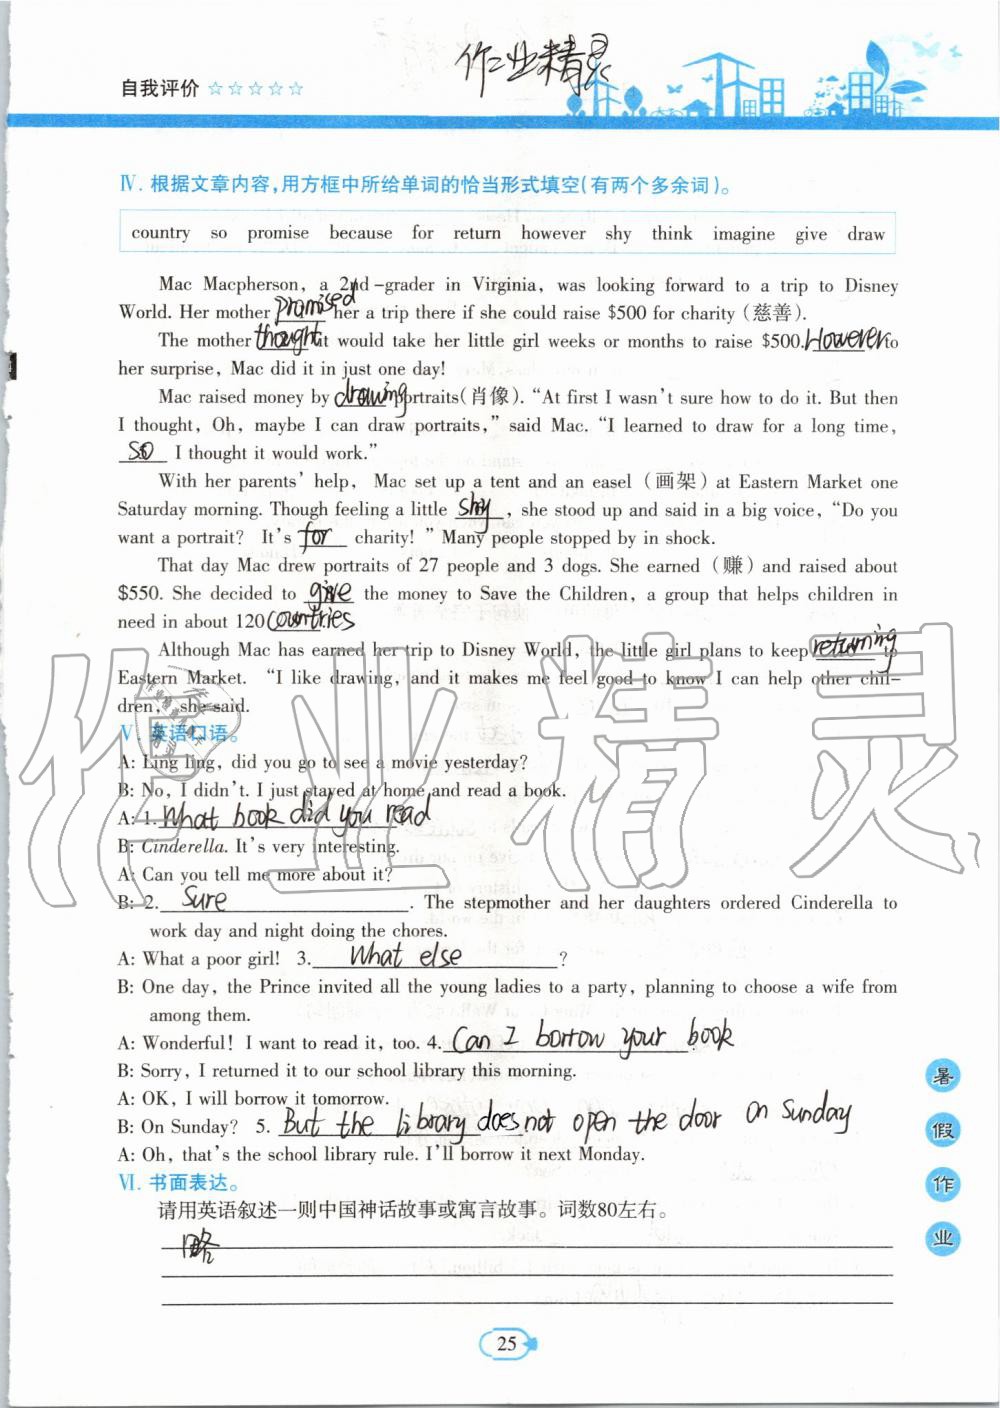 作业精灵
自我评价 ☆☆☆☆☆
Ⅳ. 根据文章内容,用方框中所给单词的恰当形式填空(有两个多余词)。
country so promise because for return however shy think imagine give draw
Mac Macpherson, a 2nd-grader in Virginia, was looking forward to a trip to Disney
World. Her mother promised her a trip there if she could raise $500 for charity (慈善).
The mother thought it would take her little girl weeks or months to raise $500. However to
her surprise, Mac did it in just one day!
Mac raised money by drawing portraits(肖像). “At first I wasn't sure how to do it. But then
I thought, Oh, maybe I can draw portraits,” said Mac. “I learned to draw for a long time,
so I thought it would work.”
With her parents' help, Mac set up a tent and an easel (画架) at Eastern Market one
Saturday morning. Though feeling a little shy, she stood up and said in a big voice, “Do you
want a portrait? It's for charity! ” Many people stopped by in shock.
That day Mac drew portraits of 27 people and 3 dogs. She earned (赚) and raised about
$550. She decided to give the money to Save the Children, a group that helps children in
need in about 120 countries
Although Mac has earned her trip to Disney World, the little girl plans to keep returning to
Eastern Market. “I like drawing, and it makes me feel good to know I can help other chil-
dren, she said.
Ⅴ. 英语口语。
A: Ling ling, did you go to see a movie yesterday?
B: No, I didn't. I just stayed at home and read a book.
A: 1. What book did you read
B: Cinderella. It's very interesting.
A: Can you tell me more about it?
B: 2. Sure. The stepmother and her daughters ordered Cinderella to
work day and night doing the chores.
A: What a poor girl! 3. What else ?
B: One day, the Prince invited all the young ladies to a party, planning to choose a wife from
among them.
A: Wonderful! I want to read it, too. 4. Can I borrow your book
B: Sorry, I returned it to our school library this morning.
A: OK, I will borrow it tomorrow.
B: On Sunday? 5. But the library does not open the door on Sunday
A: Oh, that's the school library rule. I'll borrow it next Monday.
Ⅵ. 书面表达。
请用英语叙述一则中国神话故事或寓言故事。词数80左右。
略
作业精灵
暑
假
作
业
25